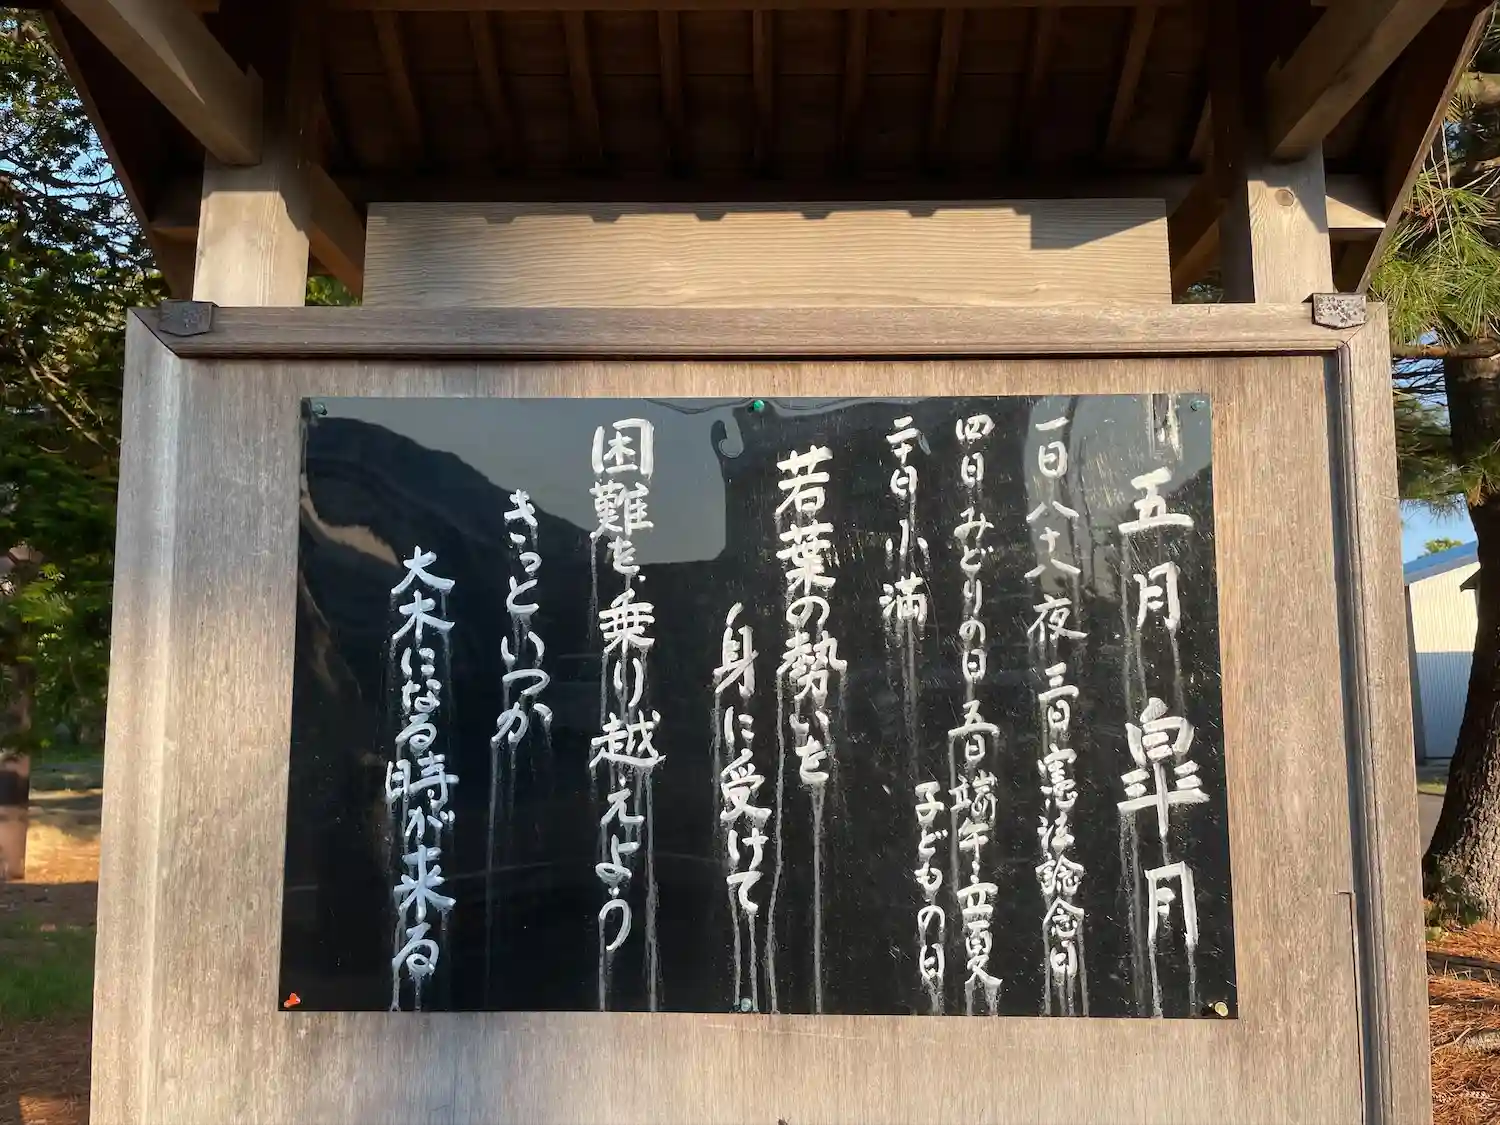 五月 皐月
一日 八十八夜 三日 憲法記念日
四日 みどりの日 五日 端午・立夏
子どもの日
二十日 小満
若葉の勢いを
身に受けて
困難を、乗り越えよう
きっといつか
大木になる時が来る